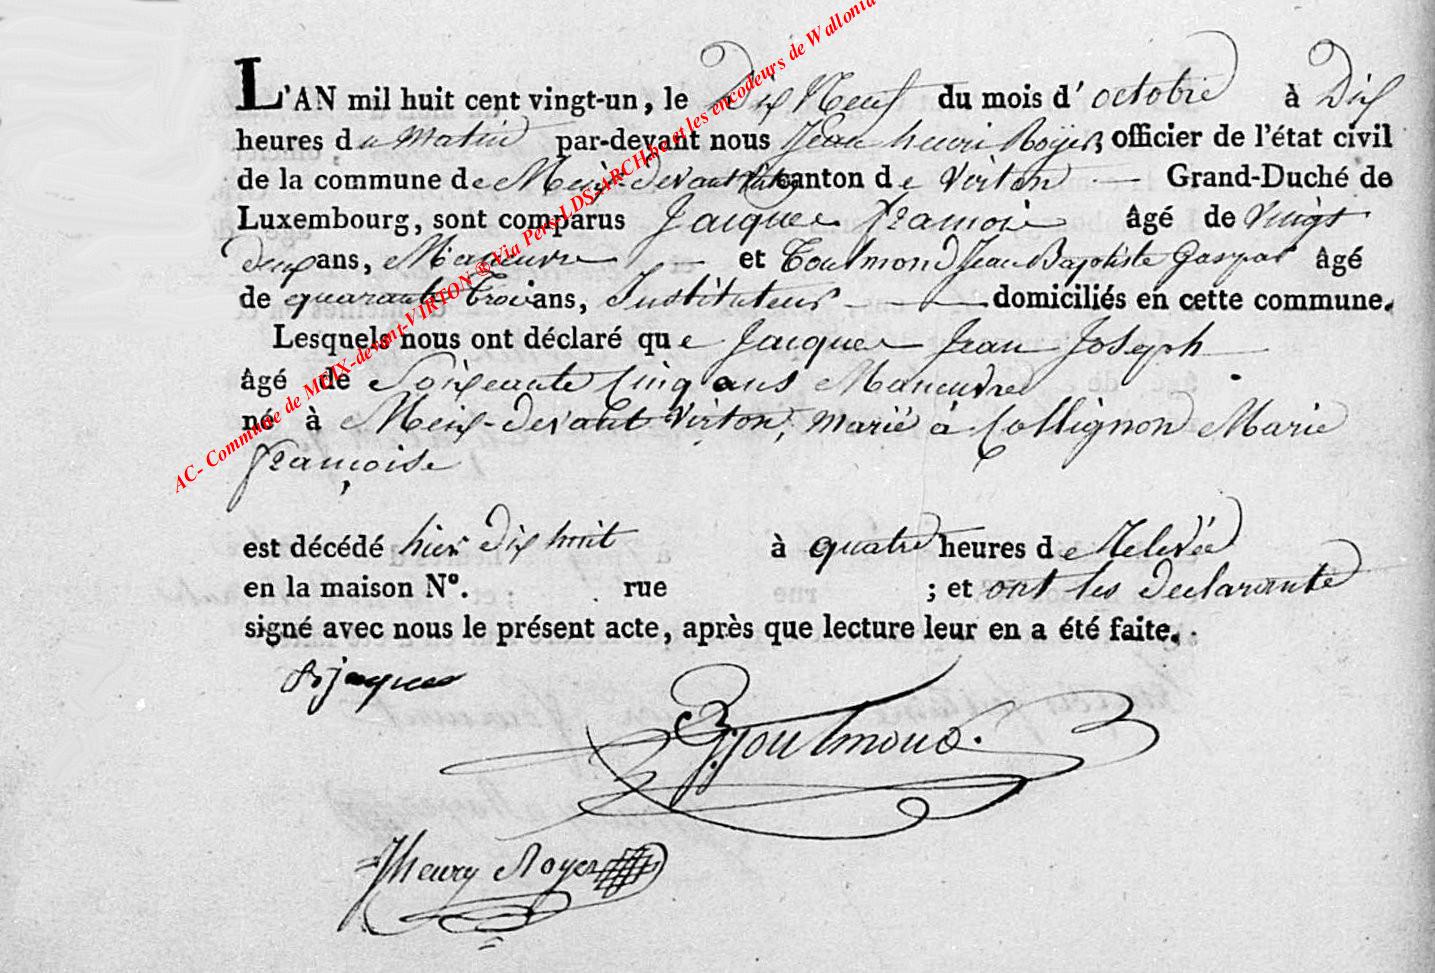 L'AN mil huit cent vingt-un, le Dix Neuf du mois d'octobre à Dix
heures du Matin par-devant nous Jean henri Royer officier de l'état civil
de la commune de Meix-devant Virton canton de Virton Grand-Duché de
Luxembourg, sont comparus Jacques François âgé de vingt
deux ans, Maneuvre et Toulmond Jean Baptiste Gaspar âgé
de quarante trois ans, Instituteur domiciliés en cette commune.
Lesquels nous ont déclaré que Jacques Jean Joseph
âgé de Soixante Cinq ans Maneuvre
né à Meix-devant Virton, marié à Collignon Marie
françoise
est décédé hier dix huit à quatre heures de Relevée
en la maison N°. rue ; et ont les declarants
signé avec nous le présent acte, après que lecture leur en a été faite.
jaques
Toulmond.
Jhenry Royer
AC- Commune de MEIX-devant-VIRTON ® Via Pers-LDS-ARCH.be et les encodeurs de Wallonia